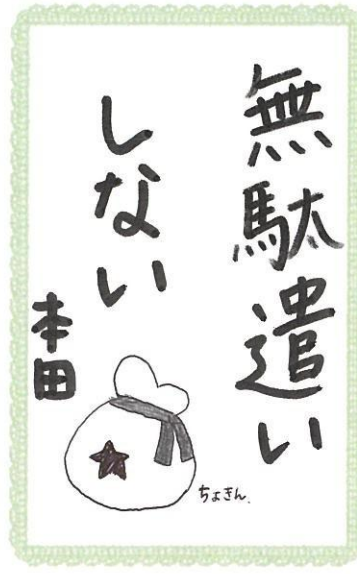 無駄遣い
しない
本田
ちょきん.